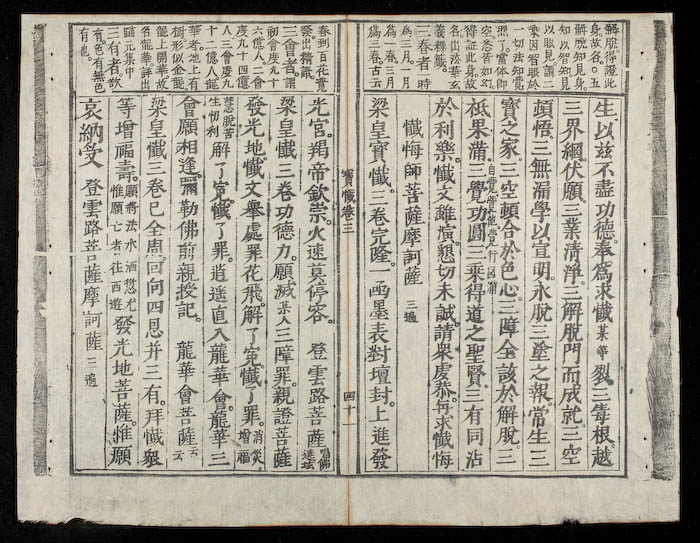 解脫得證此
身故名○五
解脫知見身
知以智知見
以眼見謂二
乘因智眼於
一切法知覺
照了當体即
空悉皆如幻
得証此身故
名出法華玄
義釋籤
三春者時
為三月一月
為一春三月
為三春古云
生以茲不盡功德奉為求懺某等裂三毒根越
三界網伏願三業清淨三解脫門而成就三空
頓悟三無漏學以宣明永脫三塗之報常生三
寶之家三空頓合於色心三障全該於解脫三
祇果滿三覺功圓三乘得道之聖賢三有同沾
於利樂懺文雖演懇切未誠請衆虔恭再求懺悔
懺悔師菩薩摩訶薩三遍
梁皇寶懺三卷完隆一函墨表對壇封上進發
寶懺卷三
四十一
春到百花
發出精嚴
三會者謂
初會度九十
六億人二會
度九十四億
人三會度九
十二億人龍
華者地上有
樹形似金龍
龍上開華故
名龍華詳出
匯元集中
三有者欲
有色有無色
有也
光官羯帝欽崇火速莫停容 登雲路菩薩
梁皇懺三卷功德力願滅某人三障罪親證菩薩
發光地懺文舉處罪花飛解了冤懺了罪消災增福
慧脫苦生忉利解了冤懺了罪逍遙直入龍華會龍華三
會願相逢彌勒佛前親授記 龍華會菩薩云云
梁皇懺三卷已全周回向四恩并三有拜懺衆
等增福壽願將法水洒愆尤惟願亡者往西遊發光地菩薩惟願
哀納受 登雲路菩薩摩訶薩三遍